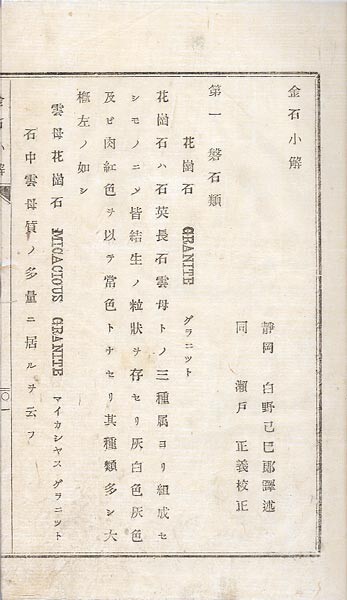 金石小解
静岡 白野己巳郎譯述
同 瀬戸正義校正
第一 磐石類
花崗石 GRANITE グラニット
花崗石ハ石英長石雲母トノ三種属ヨリ組成セ
シモノニㄨ皆結生ノ粒狀ヲ存セリ灰白色灰色
及ビ肉紅色ヲ以テ常色トナセリ其種類多シ大
概左ノ如シ
雲母花崗石 MICACIOUS GRANITE マイカシヤス グラニット
石中雲母質ノ多量ニ居ルヲ云フ